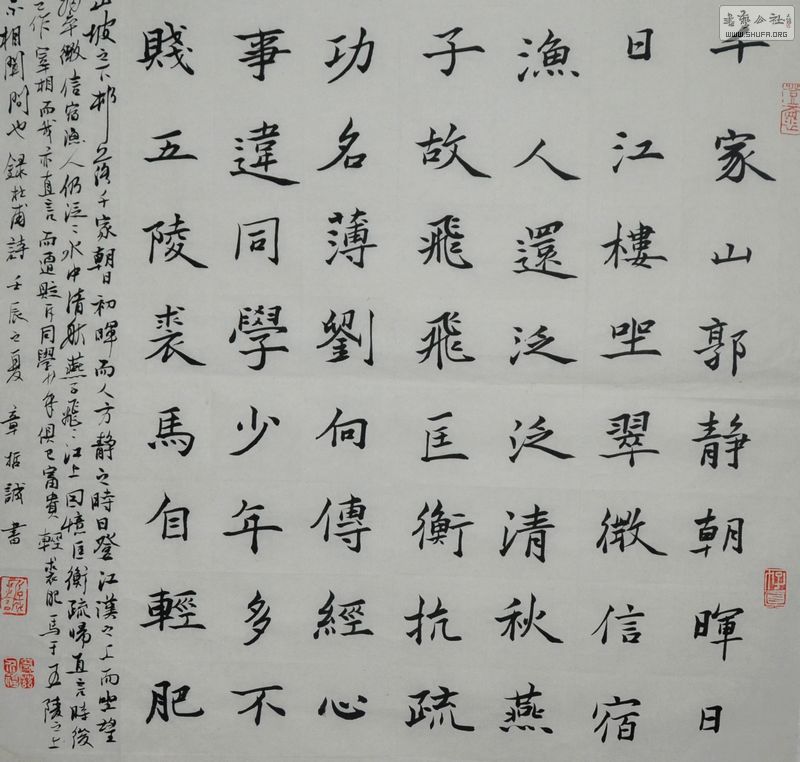 千家山郭静朝暉日
日江樓坐翠微信宿
漁人還泛泛清秋燕
子故飛飛匡衡抗疏
功名薄劉向傳經心
事違同學少年多不
賤五陵裘馬自輕肥
山坡之下村落千家朝日初暉而人方静之時日登江漢之上而坐望
微信宿漁人仍泛〻水中清秋燕子飛〻江上因憶匡衡疏直言時後
已作宰相而我亦直言而遭貶斥同學少年俱已富貴輕裘肥馬于五陵之上
不相聞問也録杜甫詩壬辰之夏 章誠書
書法公社
WWW.SHUFA.ORG